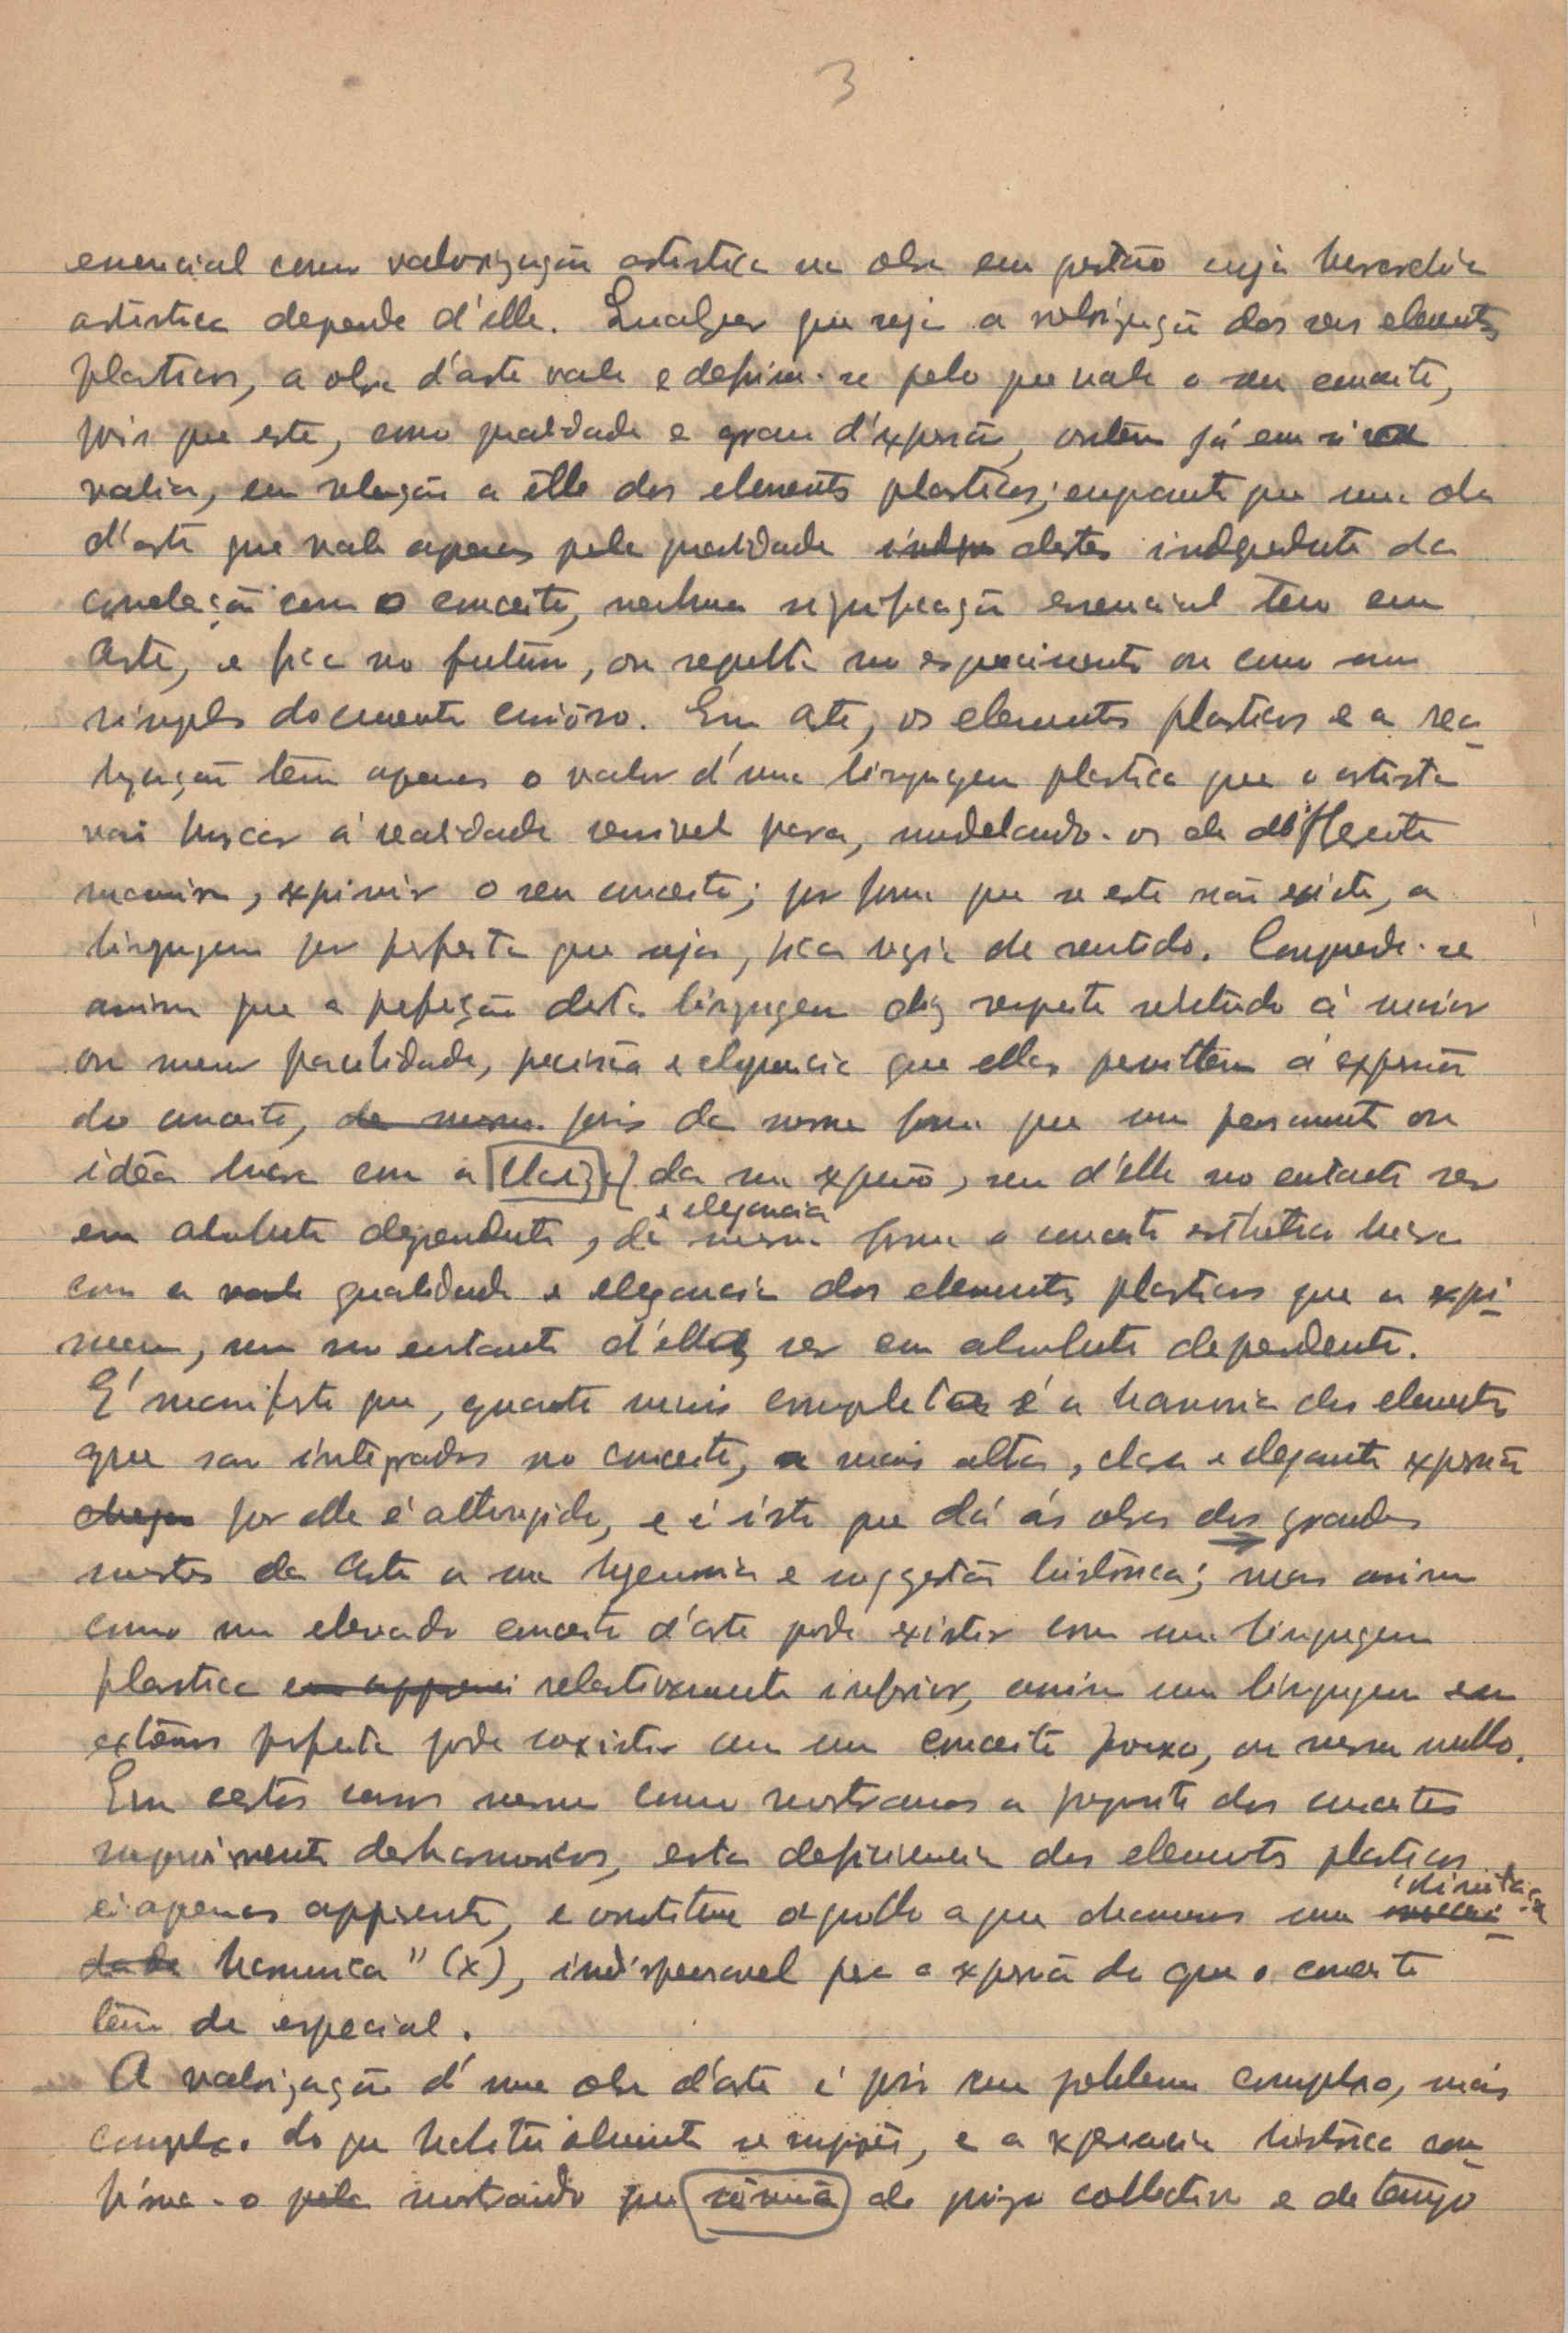 3
essencial como valorização artistica na obra em questão cuja hierarchia
artistica depende d'elle. Qualquer que seja a valorização dos seus elementos
plasticos, a obra d'arte vale e define-se pelo que vale o seu conceito,
pois que este, como qualidade e grau d'expressão, contém já em si
valia, em relação a elle dos elementos plasticos; enquanto que uma obra
d'arte que vale apenas pela qualidade destes independente da
correlação com o conceito, nenhuma significação essencial tem em
Arte, e fica no futuro, ou sepulta no esquecimento ou como um
simples documento curioso. Em Arte, os elementos plasticos e a rea-
lização têm apenas o valor d'uma linguagem plastica que o artista
vai buscar á realidade sensivel para, modelando-os de differente
maneira, exprimir o seu conceito; por forma que se este não existe, a
linguagem por perfeita que seja, fica vazia de sentido. Comprende-se
assim que a perfeição desta linguagem diz respeito sobretudo á maior
ou menor facilidade, precisão e eloquencia que ellas permittem á expressão
do conceito, de mesma pois da mesma forma que um pensamento ou
idéa lucra com a clareza da sua expressão, sem d'elle no entanto ser
e elegancia
em absoluto dependente, da mesma forma o conceito esthetico lucra
com a qualidade e elegancia dos elementos plasticos que o expri-
mem, sem no entanto d'elles ser em absoluto dependente.
E' manifesto que, quanto mais completa é a harmonia dos elementos
que são integrados no conceito, mais alta, clara e elegante expressão
por elle é attingida, e é isto que dá ás obras dos grandes
mestres da Arte a sua hegemonia e suggestão historica; mas assim
como um elevado conceito d'arte pode existir com uma linguagem
plastica relativamente inferior, assim uma linguagem em
extremo perfeita pode coexistir com um conceito frouxo, ou mesmo nullo.
Em certos casos mesmo como mostramos a proposito dos conceitos
superiormente desharmonicos, esta deficiencia dos elementos plasticos
é apenas apparente, e constitue aquillo a que chamamos uma
limitação
harmonica" (x), indispensavel para a expressão do que o conceito
têm de especial.
A valorização d'uma obra d'arte é pois um problema complexo, mais
complexo do que habitualmente se suppõe, e a experiencia historica con-
firma-o mostrando que de juizo collectivo e de tempo